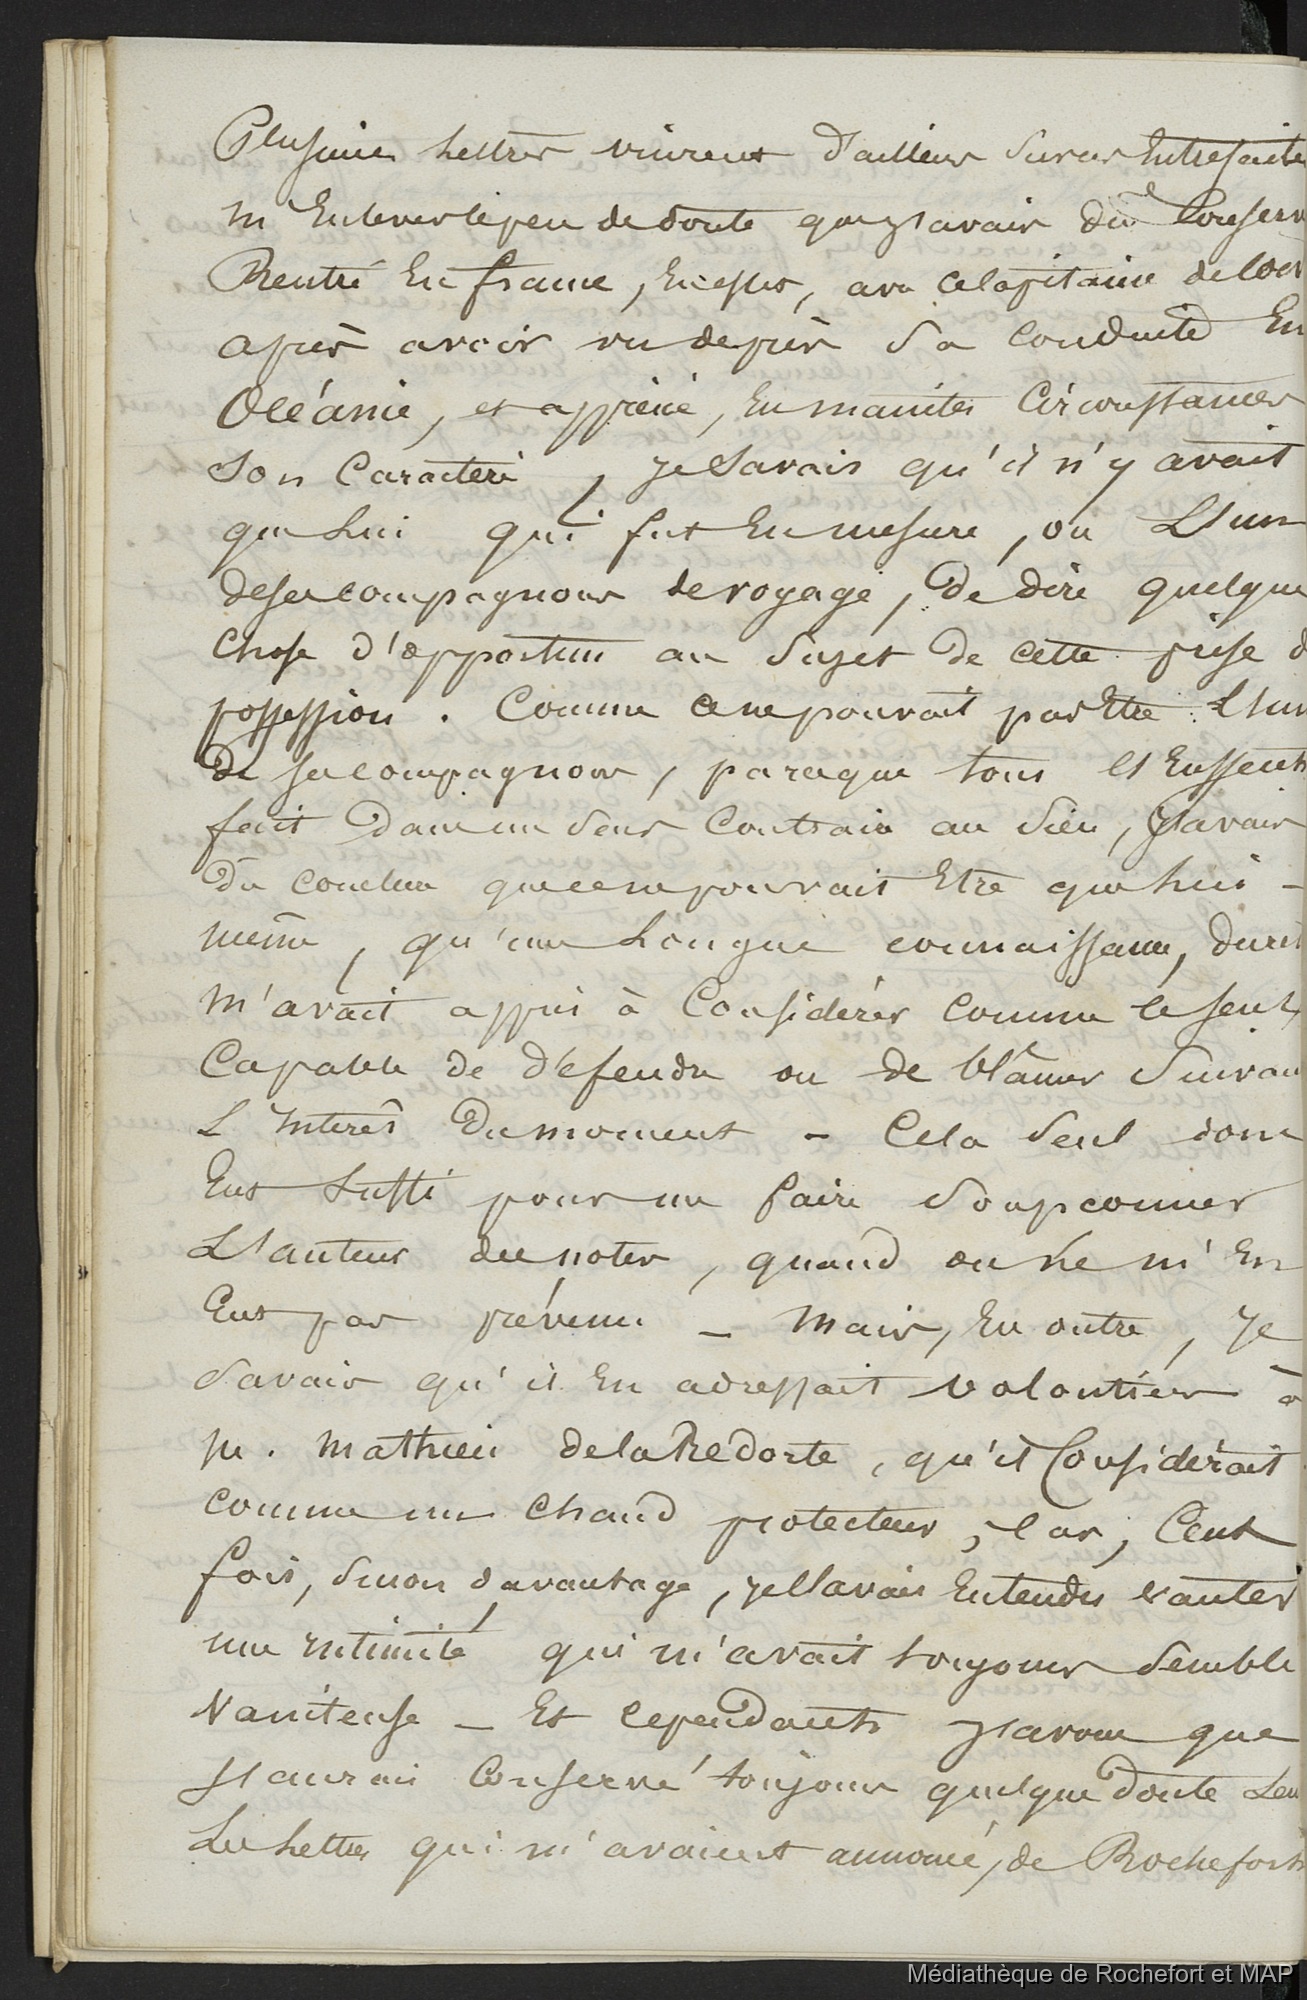 Plusieurs Lettres vinrent d'ailleurs Sur ces Entrefaites
m'Enlever le peu de doute que j'avais dû Conserv
Rentré En france, En effet, avec ce Capitaine de Cor
après avoir vu de près Sa Conduite En
Océanie, et apprécié, En maintes Circonstances
Son Caractère, je Savais qu'il n'y avait
que Lui qui fut En mesure, ou L'un
de ses compagnons de voyage, De dire quelque
Chose d'opportun au Sujet De cette prise d
possession. Comme ce ne pouvait pas Etre L'un
De ses compagnons, parceque tous l'Eussent
fait Dans un Sens Contraire au Sien, j'avais
dû conclure que ce ne pouvait Etre que Lui-
même, qu'une Longue connaissance,
m'avait appris à Considérer comme le seul
Capable de défendre ou de blâmer Suivan
L'Interêt Du moment - Cela Seul donc
Eut Suffi pour me faire Soupconner
L'auteur des notes, quand on Ne m'En
Eut pas prévenu - Mais, En outre, Je
Savais qu'il En adressait volontiers à
M. Mathieu de la Redorte, qu'il Considérait
comme un Chaud protecteur, Car, Cent
fois, Sinon davantage, je l'avais Entendu vanter
une intimité qui m'avait toujours Semblé
Vaniteuse - Et Cependant j'avoue que
j'aurais Conservé toujours quelque Doute San
Les Lettres qui m'avaient annoncé, de Rochefort
Médiathèque de Rochefort et MAP